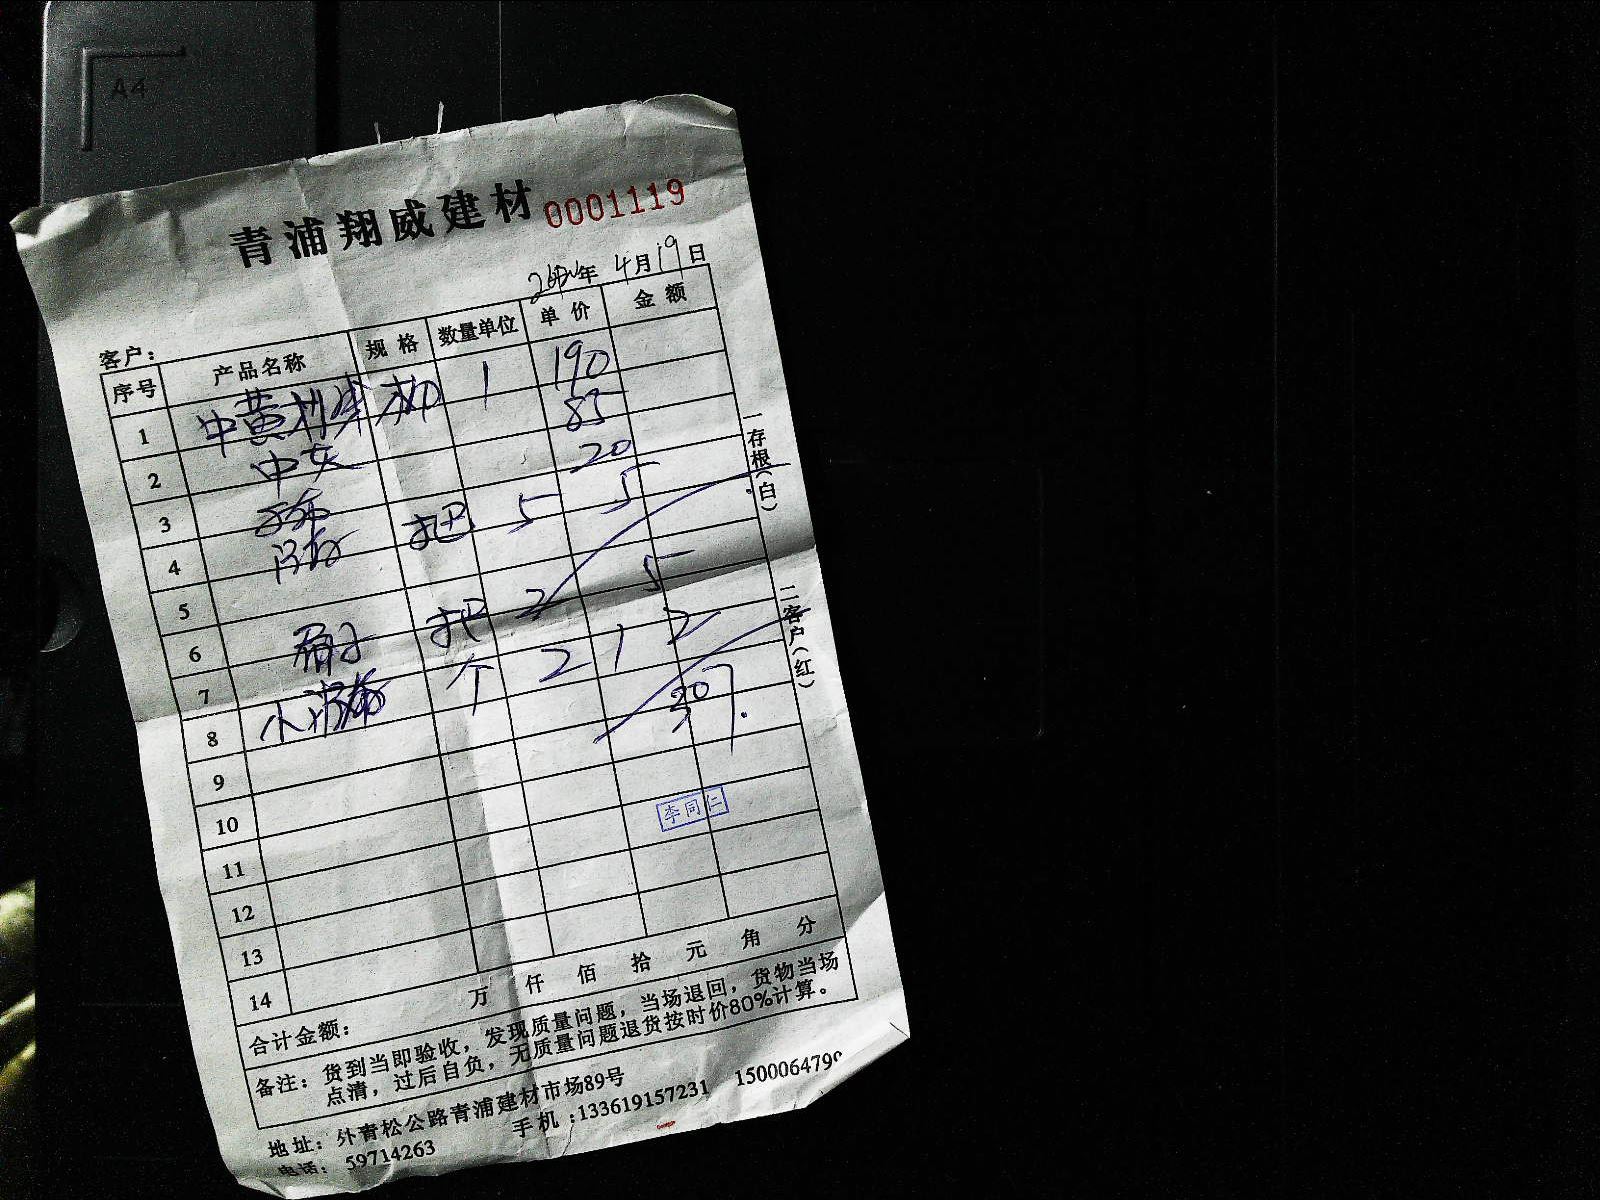 A4
青浦翔威建材 0001119
年 4月19日
客户：
序号 产品名称 规格 数量单位 单价 金额
1 中黄 1 190
2 中 85
3 20
4 把 5 5
5
6 刷子 把 2 5
7 小 个 2 1 2
8 307.
9
10
李同仁
11
12
13
14
合计金额： 万 仟 佰 拾 元 角 分
备注：货到当即验收，发现质量问题，当场退回，货物当场
点清，过后自负，无质量问题退货按时价80%计算。
地址：外青松公路青浦建材市场89号
电话：59714263 手机：133619157231 1500064799
一存根（白）
二客户（红）